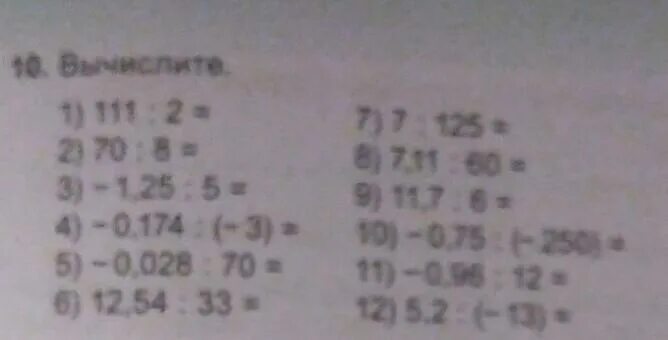 10. Вычислите.
1) 111 : 2 =
2) 70 : 8 =
3) -1,25 : 5 =
4) -0,174 : (-3) =
5) -0,028 : 70 =
6) 12,54 : 33 =
7) 7 : 125 =
8) 7,11 : 60 =
9) 11,7 : 6 =
10) -0,75 : (-250) =
11) -0,96 : 12 =
12) 5,2 : (-13) =